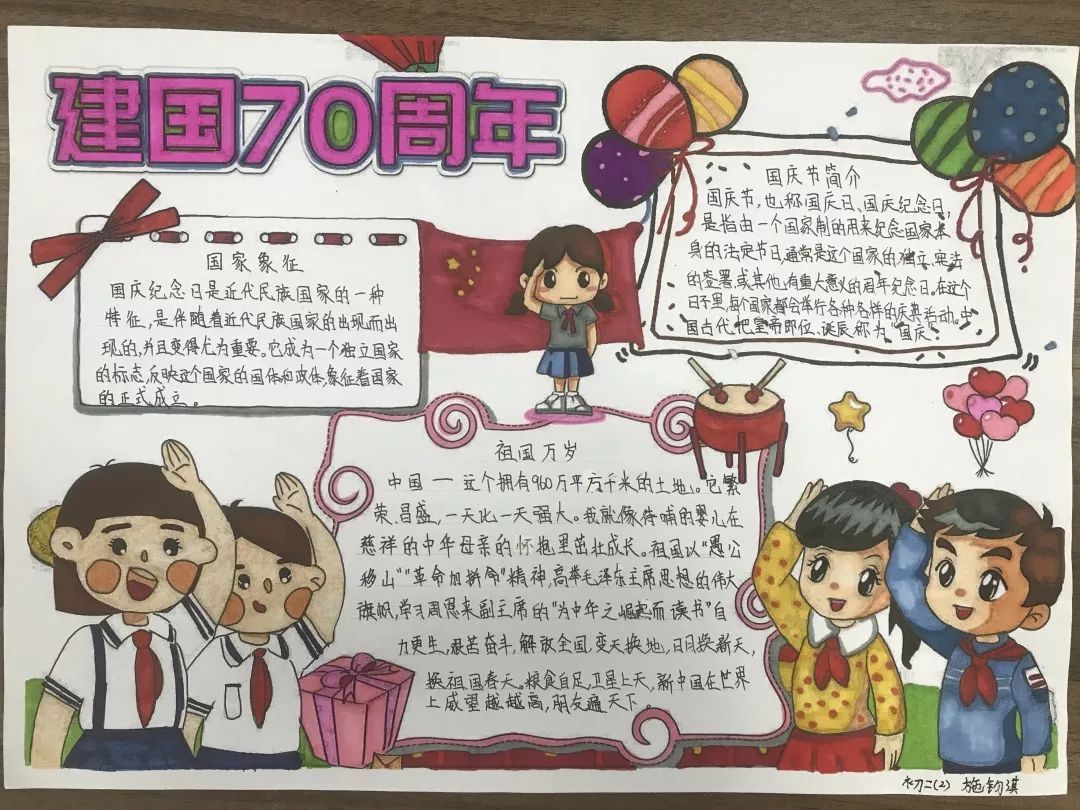 建国70周年
国家象征
国庆纪念日是近代民族国家的一种
特征,是伴随着近代民族国家的出现而出
现的,并且变得尤为重要。它成为一个独立国家
的标志,反映这个国家的国体和政体,象征着国家
的正式成立。
国庆节简介
国庆节,也称国庆日、国庆纪念日,
是指由一个国家制的用来纪念国家本
身的法定节日,通常是这个国家的独立、宪法
的签署,或其他,有重大意义的周年纪念日。在这个
日子里,每个国家都会举行各种各样的庆典活动。中
国古代把皇帝即位、诞辰称为“国庆”。
祖国万岁
中国一一这个拥有960万平方千米的土地。它繁
荣昌盛,一天比一天强大。我就像待哺的婴儿在
慈祥的中华母亲的怀抱里茁壮成长。祖国以“愚公
移山”“革命加拼命”精神,高举毛泽东主席思想的伟大
旗帜,学习周恩来副主席的“为中华之崛起而读书”自
力更生,艰苦奋斗,解放全国,变天换地,日月换新天,
换祖国春天。粮食自足,卫星上天,新中国在世界
上威望越越高,朋友遍天下。
初二(2) 施钧淇